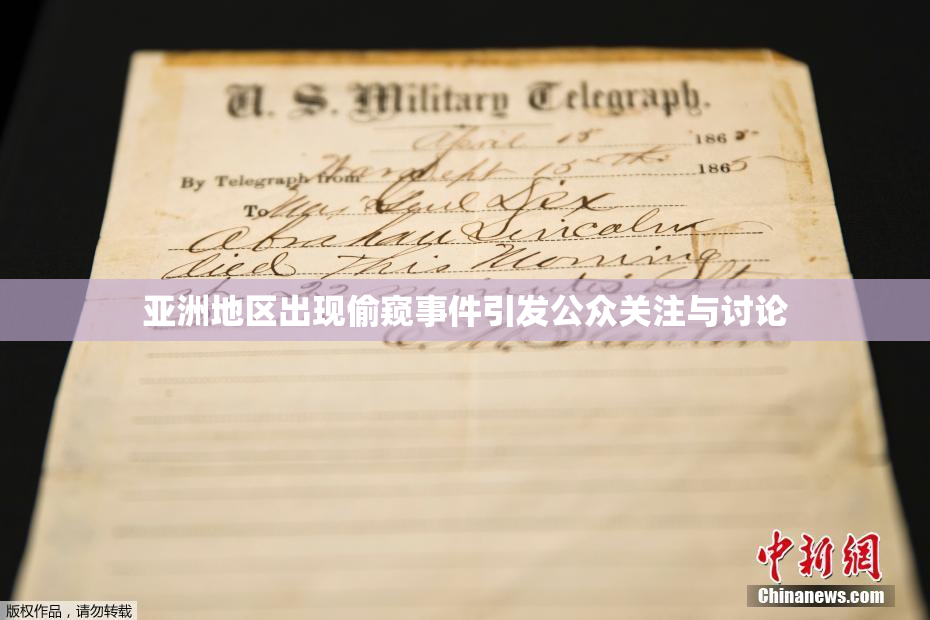 U. S. Military Telegraph.
April 15 1865
By Telegraph from War Dept 15th 1865
To Maj Genl Dix
Abraham Lincoln
died This Morning
at 22 minutes after
亚洲地区出现偷窥事件引发公众关注与讨论
E. M. Stanton
中新网
Chinanews.com
版权作品，请勿转载